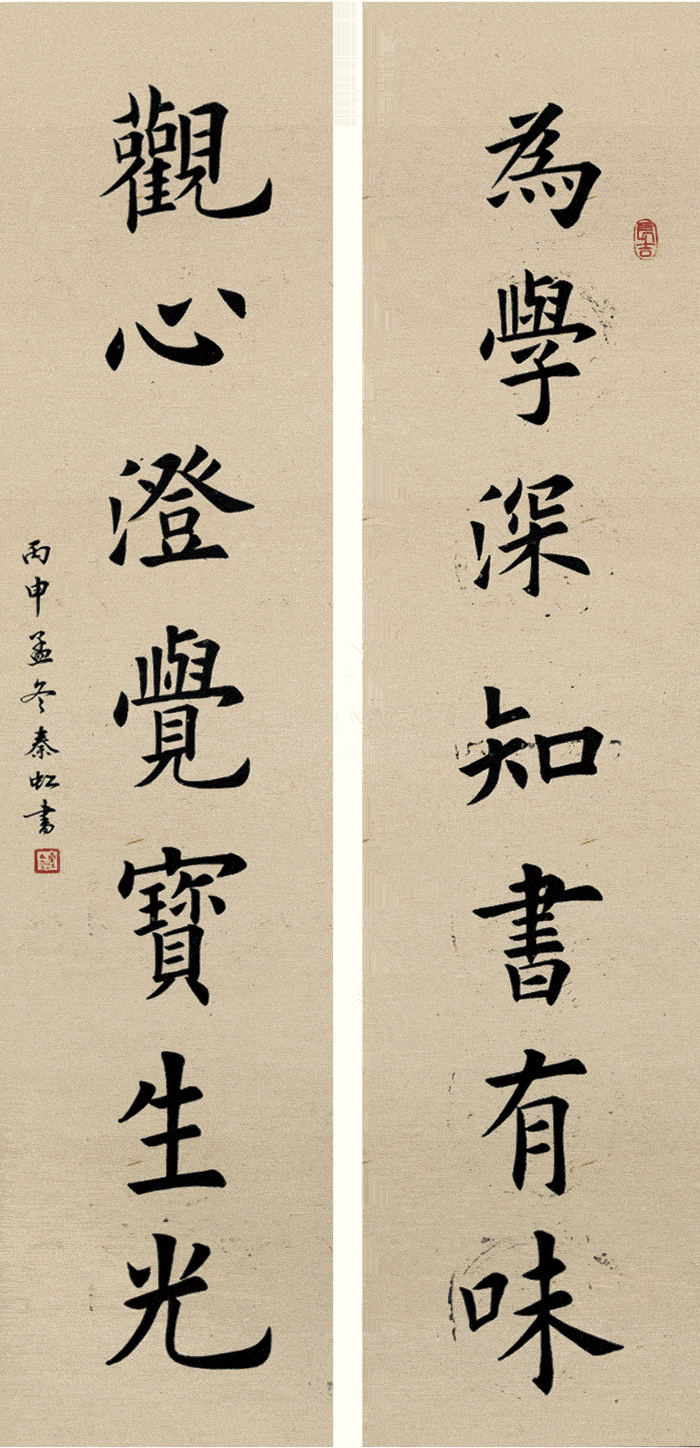 為學深知書有味
觀心澄覺寶生光
丙申孟冬秦虹書